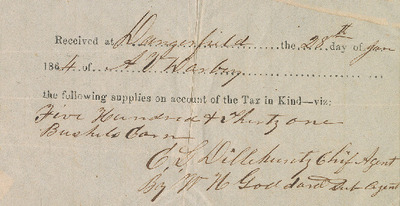 Received at Dangerfield the 28th day of Jan
1864 of A V Darby
the following supplies on account of the Tax in Kind—viz:
Five Hundred & Thirty one
Bushels Corn
E. S. Dillehuntz Chif Agent
By W H Goddard Sub Agent